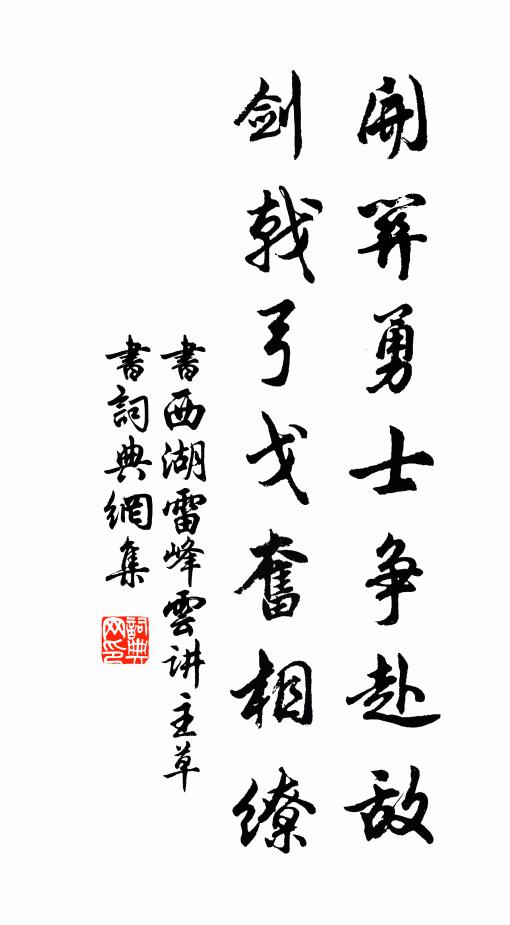 開羿勇士争赴敌
劍戟弓戈奮相繚
書西湖雷峰雲讲主草
書詞典網集
詞典网印